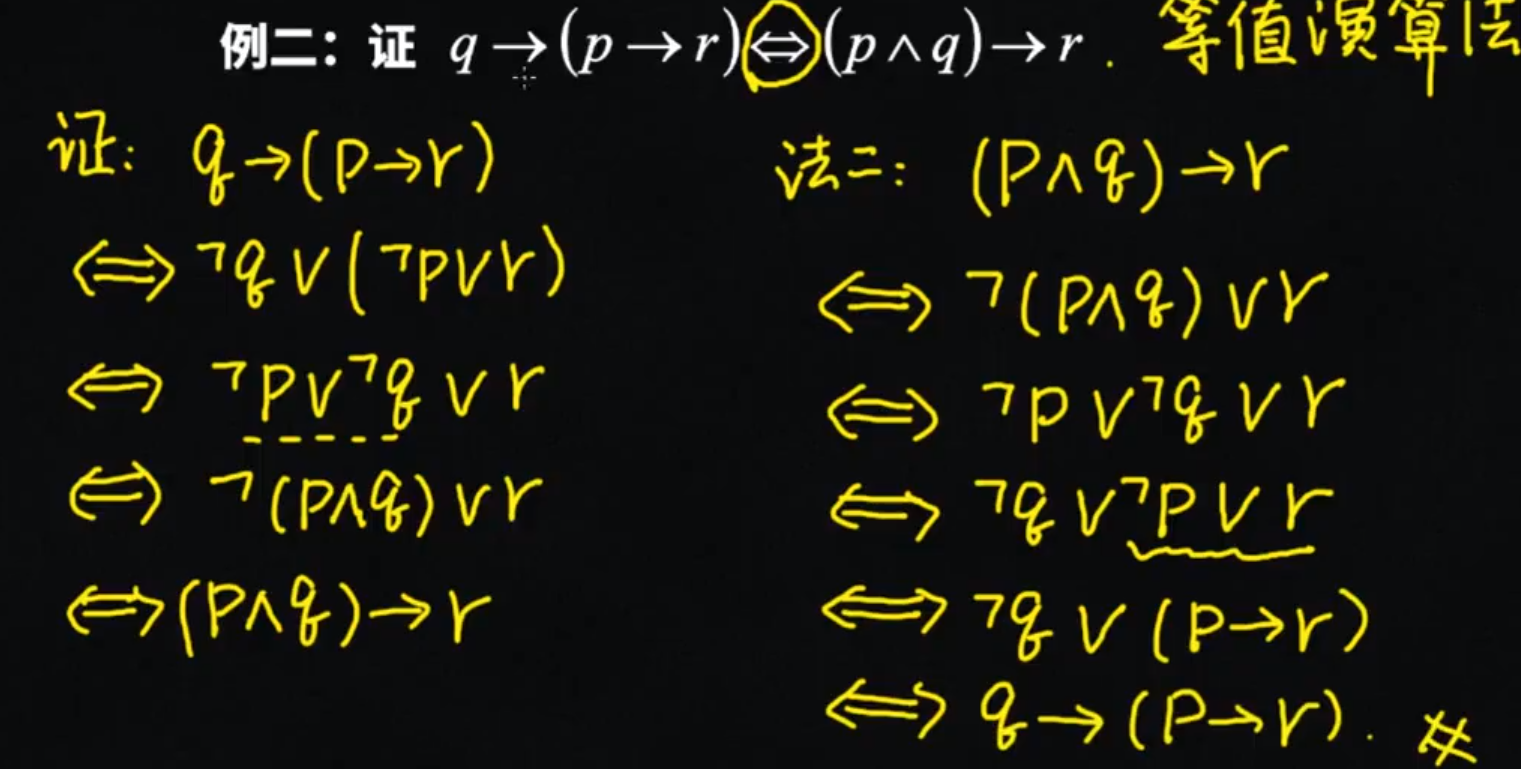 例二：证 q→(p→r)⇔(p∧q)→r. 等值演算法
证: q→(p→r)
⇔ ¬q∨(¬p∨r)
⇔ ¬p∨¬q∨r
⇔ ¬(p∧q)∨r
⇔(p∧q)→r
法二: (p∧q)→r
⇔ ¬(p∧q)∨r
⇔ ¬p∨¬q∨r
⇔ ¬q∨¬p∨r
⇔ ¬q∨(p→r)
⇔ q→(p→r). #